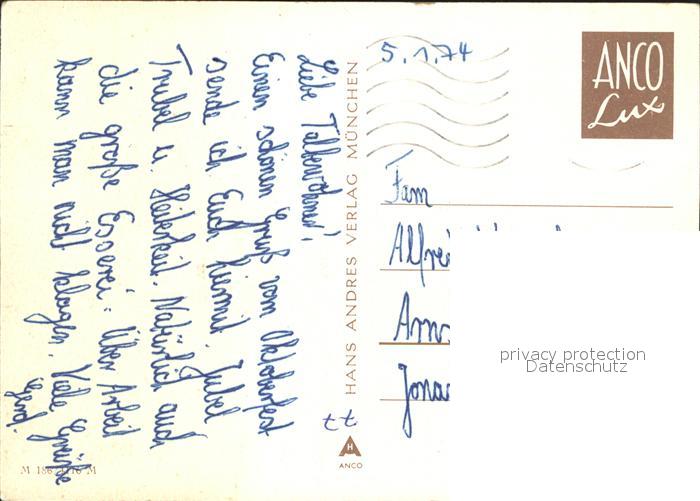 5.1.74
ANCO
Lux
Liebe Talbewohner!
Einen schönen Gruß vom Oktoberfest
sende ich Euch hiermit. Jubel
Trubel u. Heiterkeit. Natürlich auch
die große Esserei. Über Arbeit
kann man nicht klagen. Viele Grüße
Gerd.
HANS ANDRES VERLAG MÜNCHEN
77
H
ANCO
Fam
Alfre
Arn
Jona
privacy protection
Datenschutz